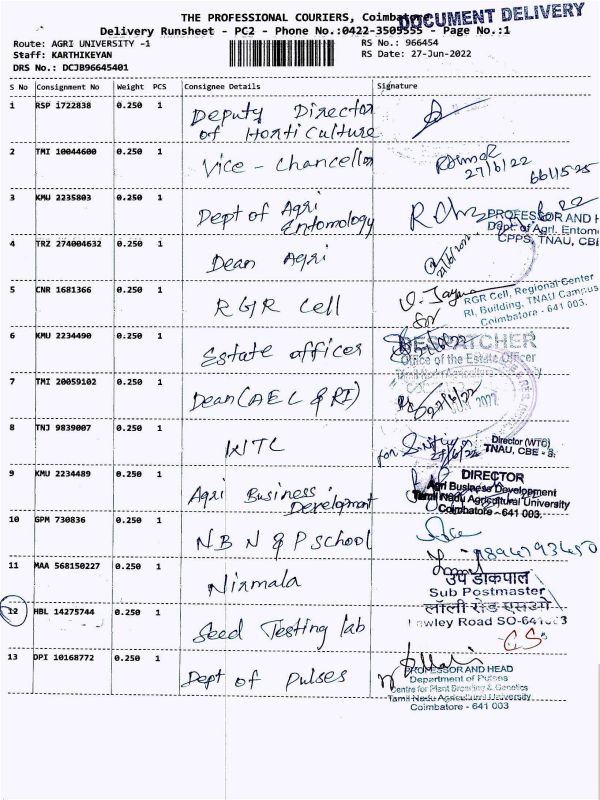 THE PROFESSIONAL COURIERS, Coimbatore
DOCUMENT DELIVERY
Delivery Runsheet - PC2 - Phone No.:0422-3505555 - Page No.:1
Route: AGRI UNIVERSITY -1
RS No.: 966454
Staff: KARTHIKEYAN
RS Date: 27-Jun-2022
DRS No.: DCJB96645401
S No Consignment No Weight PCS Consignee Details Signature
1 RSP 1722838 0.250 1 Deputy Director
of Horticulture
2 TMI 10044600 0.250 1 Vice - Chancellor
27/6/22
6611525
3 KMU 2235803 0.250 1 Dept of Agri
Entomology
PROFESSOR AND H
Dept. of Agrl. Entomo
CPPS, TNAU, CBE
4 TRZ 274004632 0.250 1 Dean Agri
5 CNR 1681366 0.250 1 R G R Cell
RGR Cell, Regional Center
RI, Building, TNAU Campus
Coimbatore - 641 003.
6 KMU 2234490 0.250 1 Estate officer
DESPATCHER
Office of the Estate Officer
7 TMI 20059102 0.250 1 Dean (A E C & RI)
27/6/22
8 TNJ 9839007 0.250 1 WTC
for
Director (WTC)
TNAU, CBE - 3.
9 KMU 2234489 0.250 1 Agri Business
Development
DIRECTOR
Agri Business Development
Tamil Nadu Agricultural University
Coimbatore - 641 003.
10 GPM 730836 0.250 1 N B N & P School
11 MAA 568150227 0.250 1 Nirmala
उप डाकपाल
Sub Postmaster
लॉली रोड एसओ
Lawley Road SO-641003
12 HBL 14275744 0.250 1 Seed Testing lab
13 DPI 10168772 0.250 1 Dept of Pulses
PROFESSOR AND HEAD
Department of Pulses
Centre for Plant Breeding & Genetics
Tamil Nadu Agricultural University
Coimbatore - 641 003